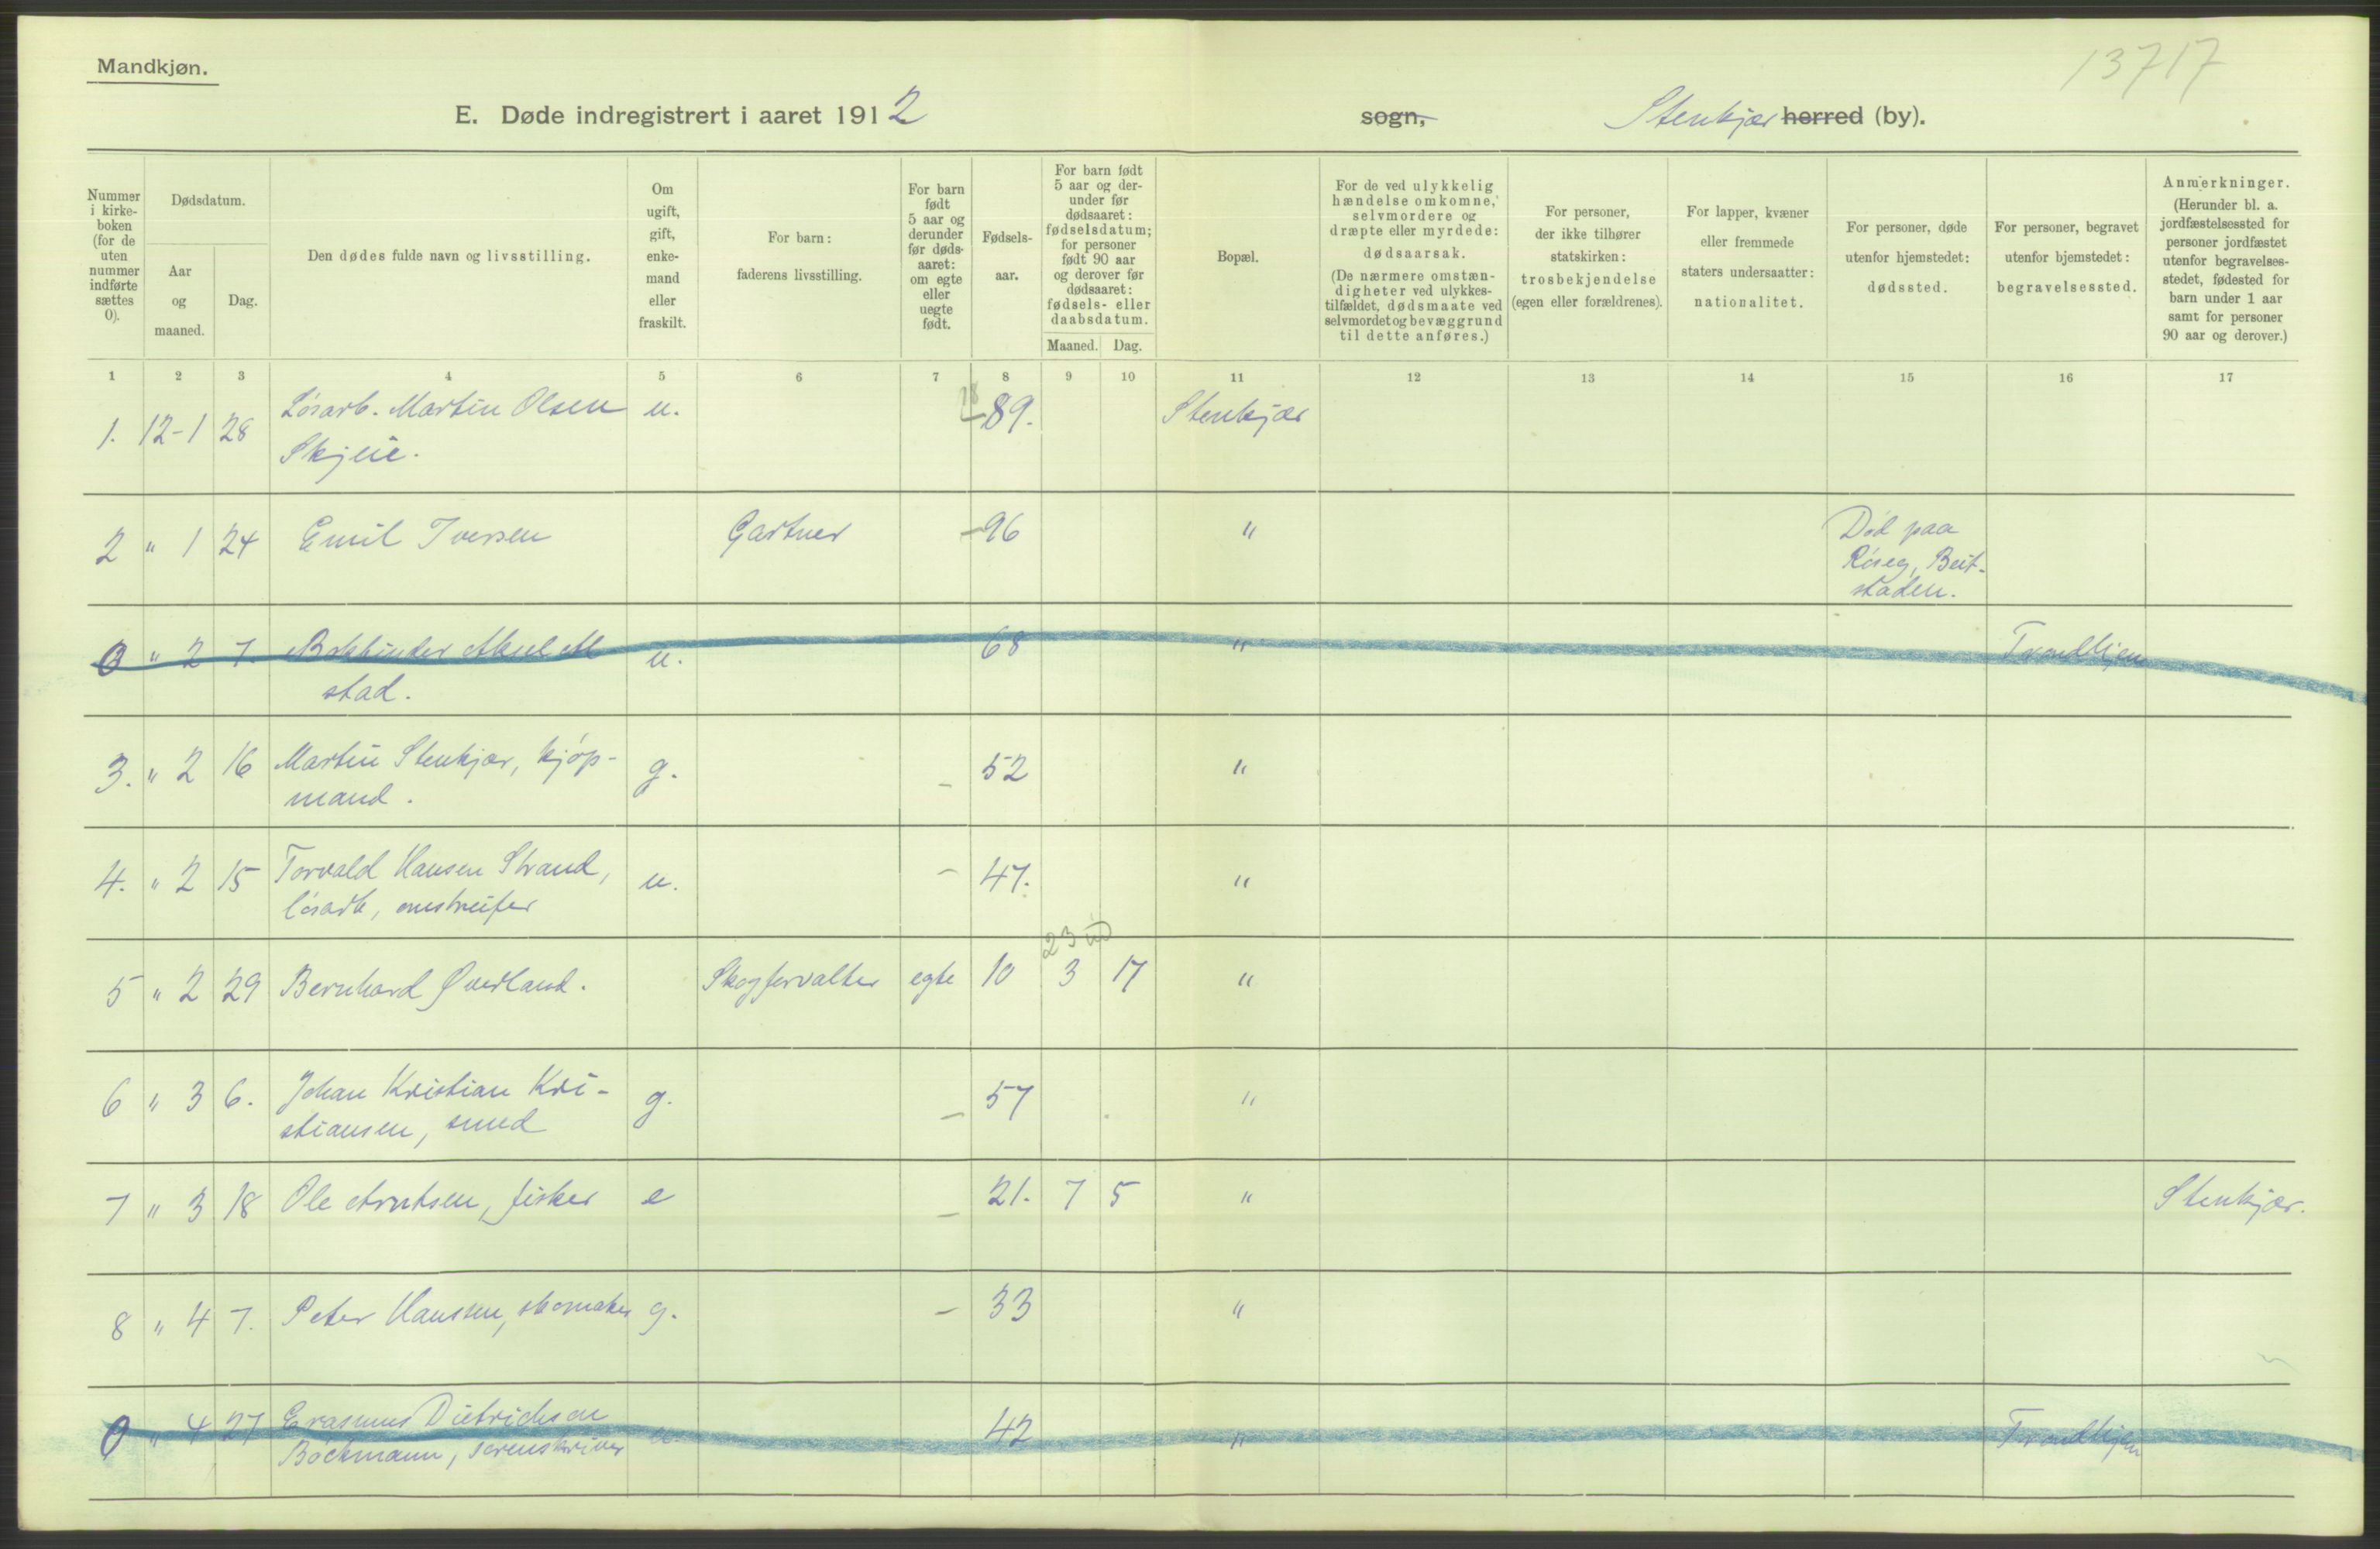 Mandkjøn.
13717
E. Døde indregistrert i aaret 1912 sogn, Stenkjær herred (by).
Nummer i kirke-boken (for de uten nummer indførte sættes 0).
Dødsdatum.
Aar og maaned.
Dag.
Den dødes fulde navn og livsstilling.
Om ugift, gift, enke-mand eller fraskilt.
For barn: faderens livsstilling.
For barn født 5 aar og derunder før døds-aaret: om egte eller uegte født.
Fødsels-aar.
For barn født 5 aar og der-under før dødsaaret: fødselsdatum; for personer født 90 aar og derover før dødsaaret: fødsels- eller daabsdatum.
Maaned. Dag.
Bopæl.
For de ved ulykkelig hændelse omkomne, selvmordere og dræpte eller myrdede: dødsaarsak. (De nærmere omstæn-digheter ved ulykkes-tilfældet, dødsmaate ved selvmordet og bevæggrund til dette anføres.)
For personer, der ikke tilhører statskirken: trosbekjendelse (egen eller forældrenes).
For lapper, kvæner eller fremmede staters undersaatter: nationalitet.
For personer, døde utenfor hjemstedet: dødssted.
For personer, begravet utenfor hjemstedet: begravelsessted.
Anmerkninger. (Herunder bl. a. jordfæstelsessted for personer jordfæstet utenfor begravelses-stedet, fødested for barn under 1 aar samt for personer 90 aar og derover.)
1 2 3 4 5 6 7 8 9 10 11 12 13 14 15 16 17
1. 12-1 28 Lösarb. Martin Olsen u. 89. Stenkjær
Skjeie.
2 " 1 24 Emil Iversen Gartner - 96 " Död paa
Beit-
staden.
0 " 2 7. Bokbinder Aksel u. 68 " Trondhjem
stad.
3. " 2 16 Martin Stenkjær, kjöp- g. - 52 "
mand.
4. " 2 15 Torvald Hansen Strand, u. - 47. "
lösarb, omstreifer
23
5 " 2 29 Bernhard Øverland. Skogforvalter egte 10 3 17 "
6 " 3 6. Johan Kristian Kri- g. - 57 "
stiansen, smed
7 " 3 18 Ole Arntsen, fisker e - 21. 7 5 " Stenkjær.
8 " 4 7. Peter Hanssen, skomaker g. - 33 "
0 " 4 27 Erasmus Dietrichson u. 42 " Trondhjem
Böckmann, sorenskriver